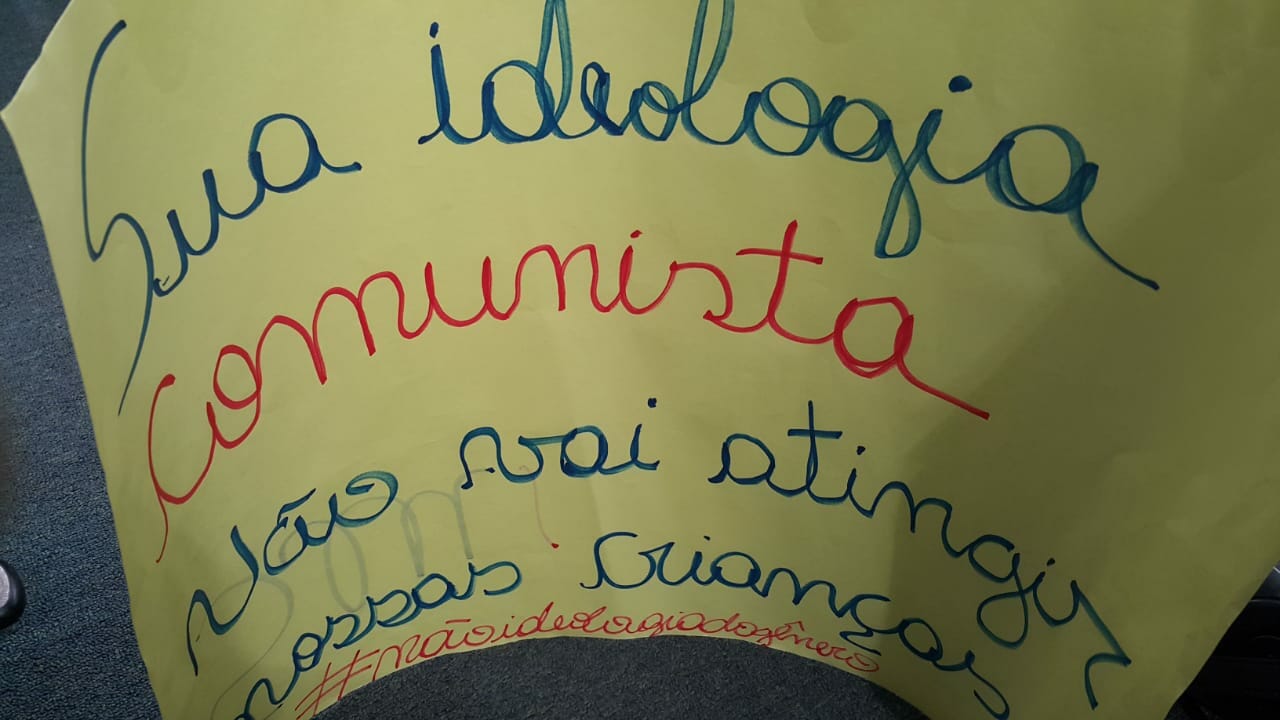 Sua ideologia
comunista
Não vai atingir
nossas crianças
#nãoideologiadogênero